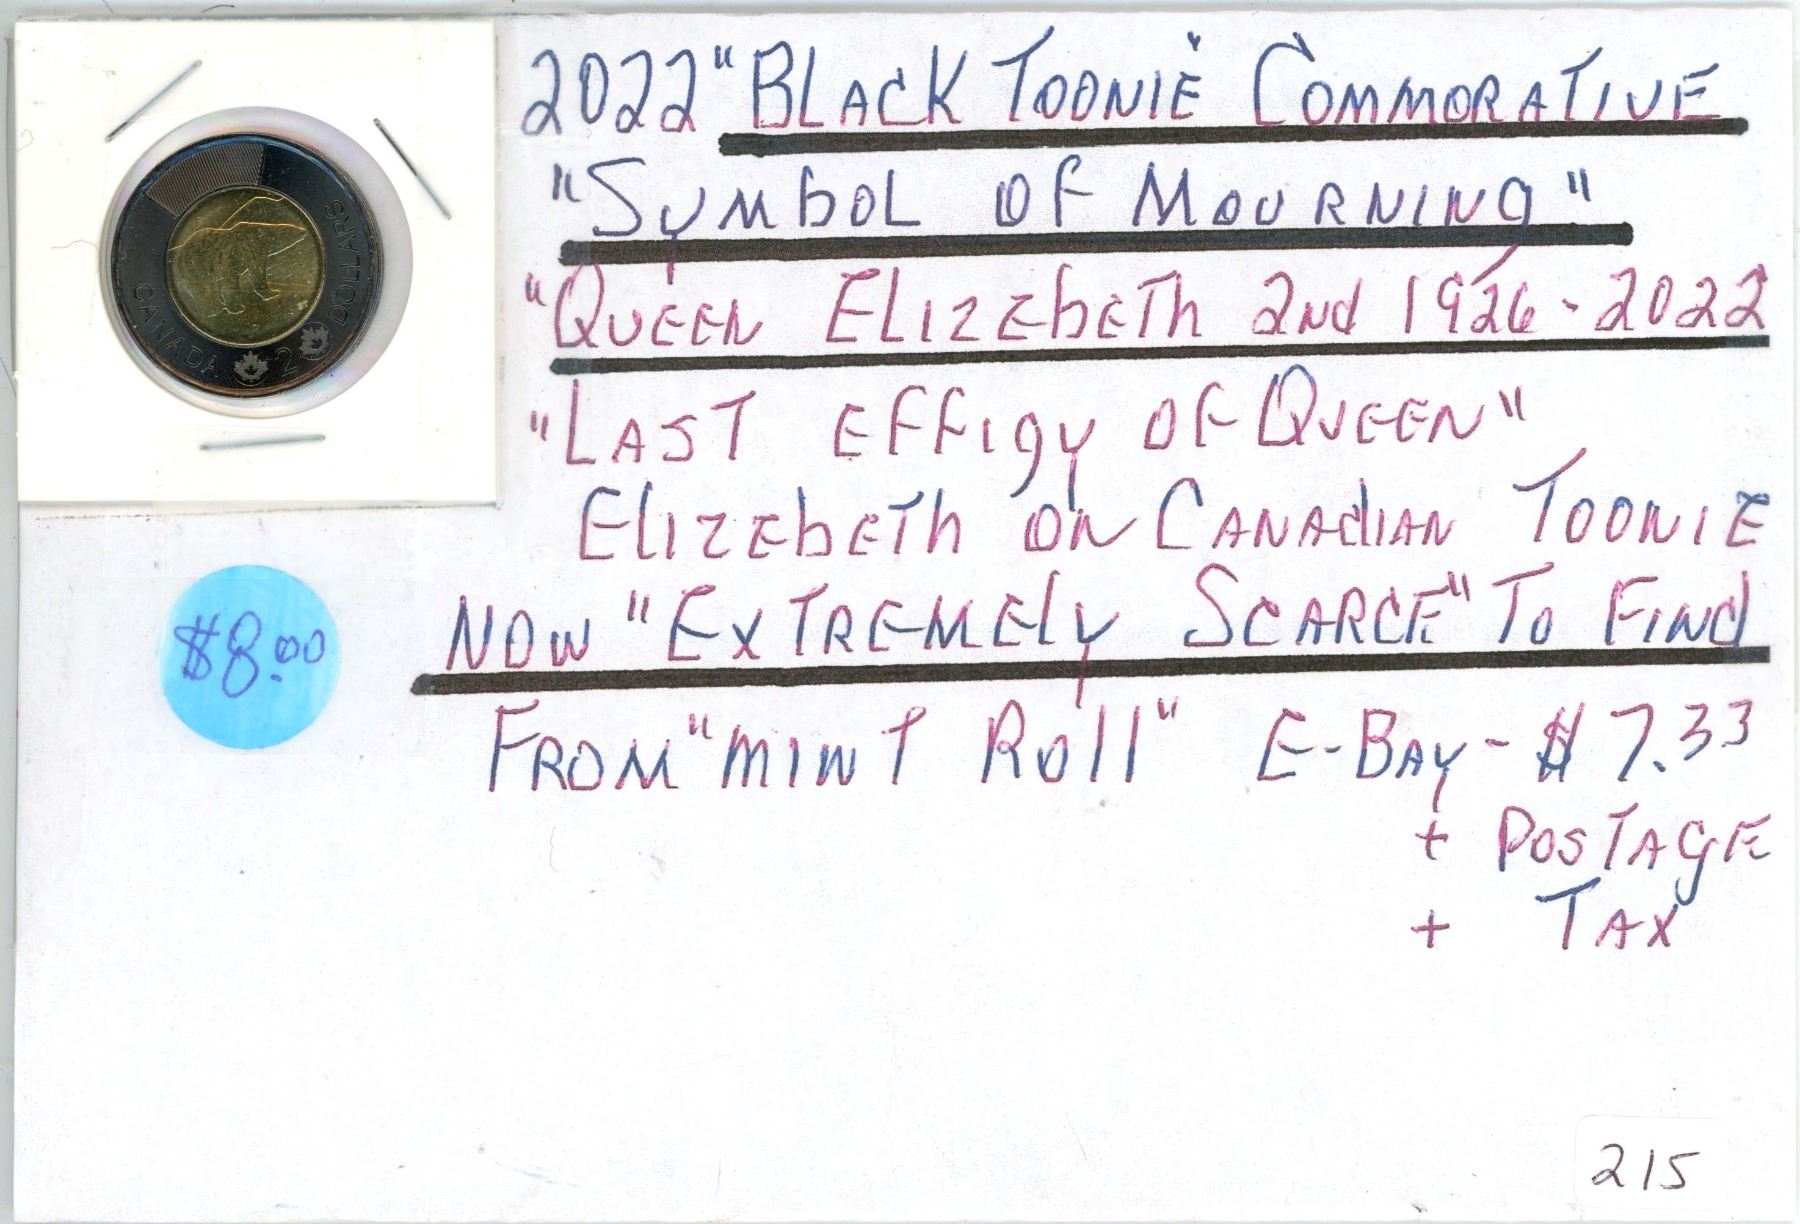 2022 "BLACK TOONIE" COMMORATIVE
"SYMBOL OF MOURNING"
"QUEEN ELIZEbETH 2Nd 1926-2022
"LAST EFFIGY OF QUEEN"
ELIZEbETH ON CANADIAN TOONIE
NOW "EXTREMELY SCARCE" TO FIND
FROM "MINT ROLL" E-BAY - $7.33
+ POSTAGE
+ TAX
$8.00
CANADA 2 DOLLARS
215